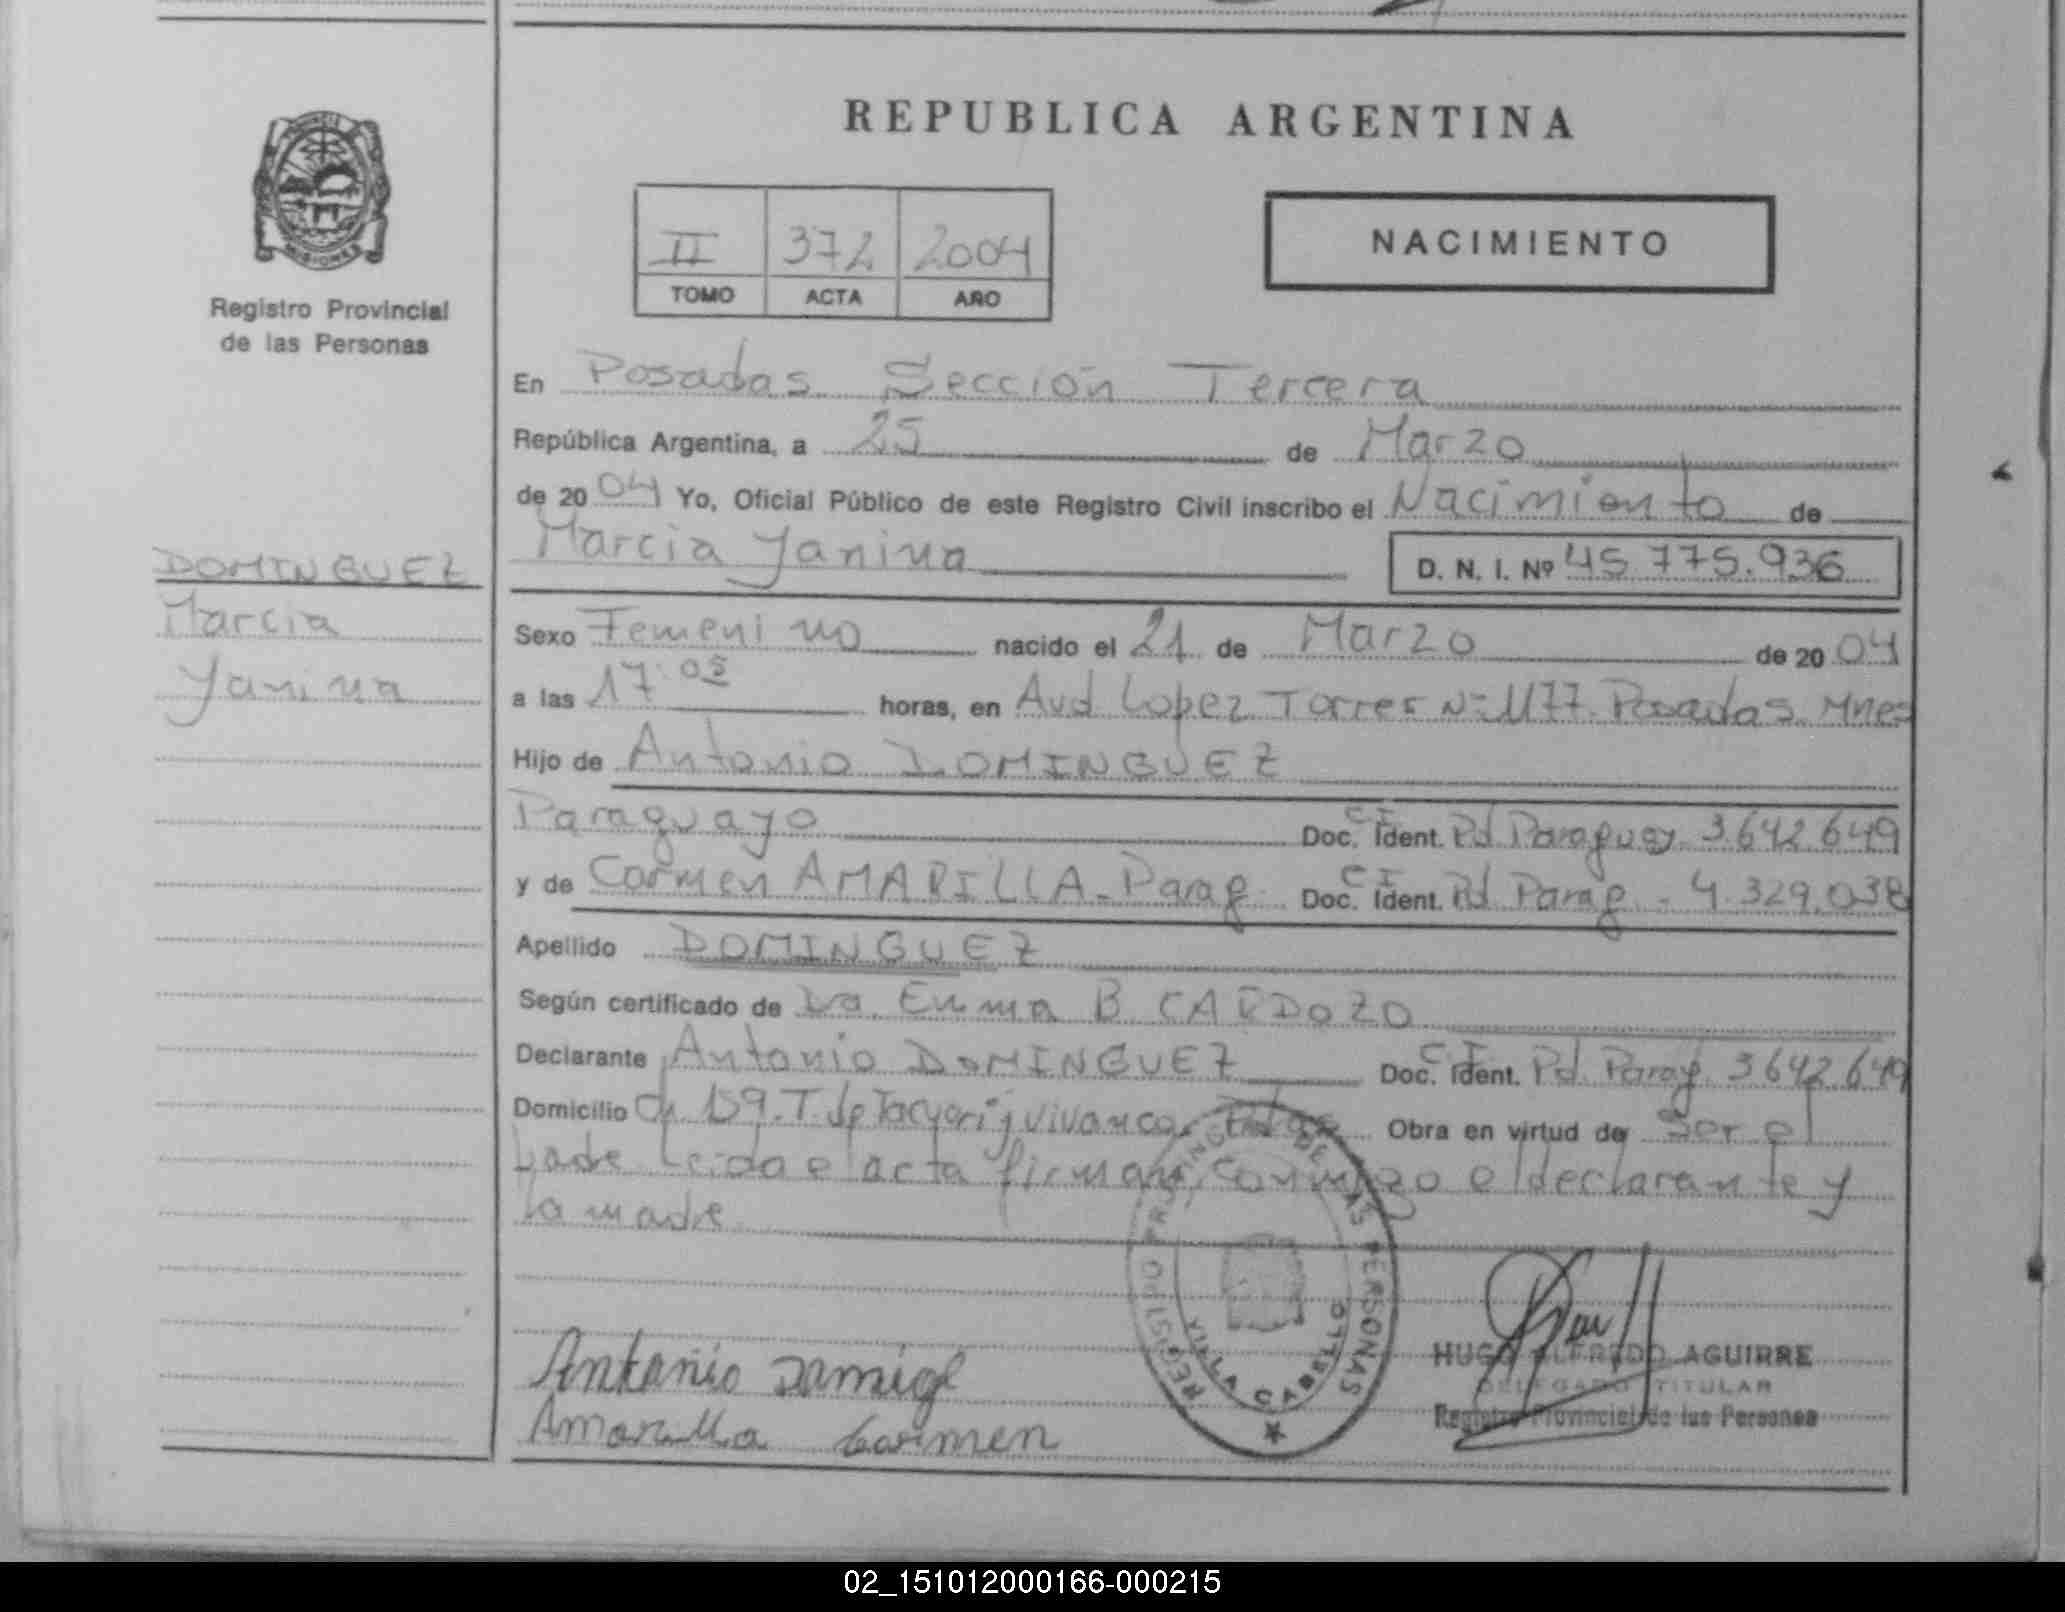 REPUBLICA ARGENTINA
PROVINCIA
MISIONES
Registro Provincial
de las Personas
II 372 2004
TOMO ACTA AÑO
NACIMIENTO
En Posadas Sección Tercera
República Argentina, a 25 de Marzo
de 2004 Yo, Oficial Público de este Registro Civil inscribo el Nacimiento de
Marcia Yanina D. N. I. Nº 45.775.936
DOMINGUEZ
Marcia
Yanina
Sexo Femenino nacido el 21 de Marzo de 2004
a las 17:05 horas, en Avd Lopez Torres Nº 1177. Posadas Mnes
Hijo de Antonio DOMINGUEZ
Paraguayo Doc. Ident. C I Pd Paraguay 3.642.649
y de Carmen AMARILLA - Parag. Doc. Ident. C I Pd Parag. - 4.329.038
Apellido DOMINGUEZ
Según certificado de Dra. Emma B CARDOZO
Declarante Antonio DOMINGUEZ Doc. Ident. C I Pd. Parag. 3642.649
Domicilio Ch 159. T. de Tacuari y Vivanco. Pdas Obra en virtud de Ser el
Padre Leida el acta firman conmigo el declarante y
la madre
REGISTRO PROVINCIAL DE LAS PERSONAS
VILLA CABELLO
Antonio
Amarilla Carmen
HUGO ALFREDO AGUIRRE
DELEGADO TITULAR
Registro Provincial de las Personas
02_151012000166-000215